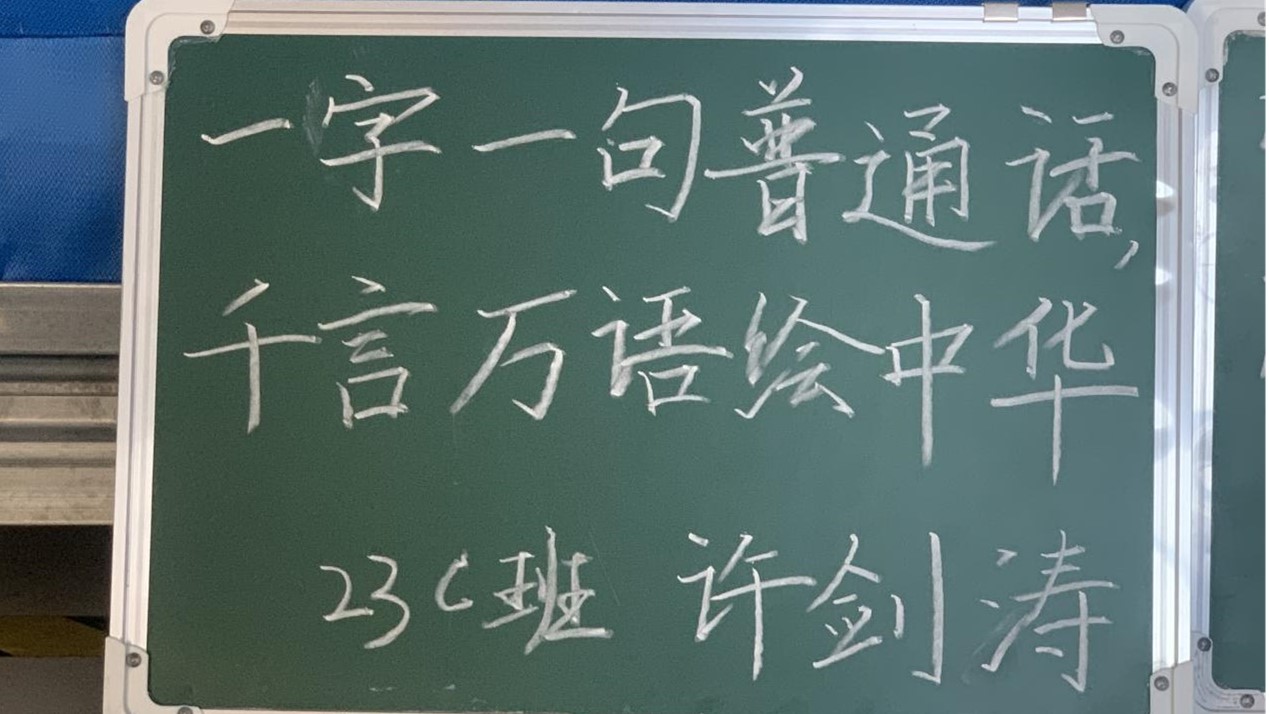 一字一句普通话,
千言万语绘中华
23C班 许剑涛